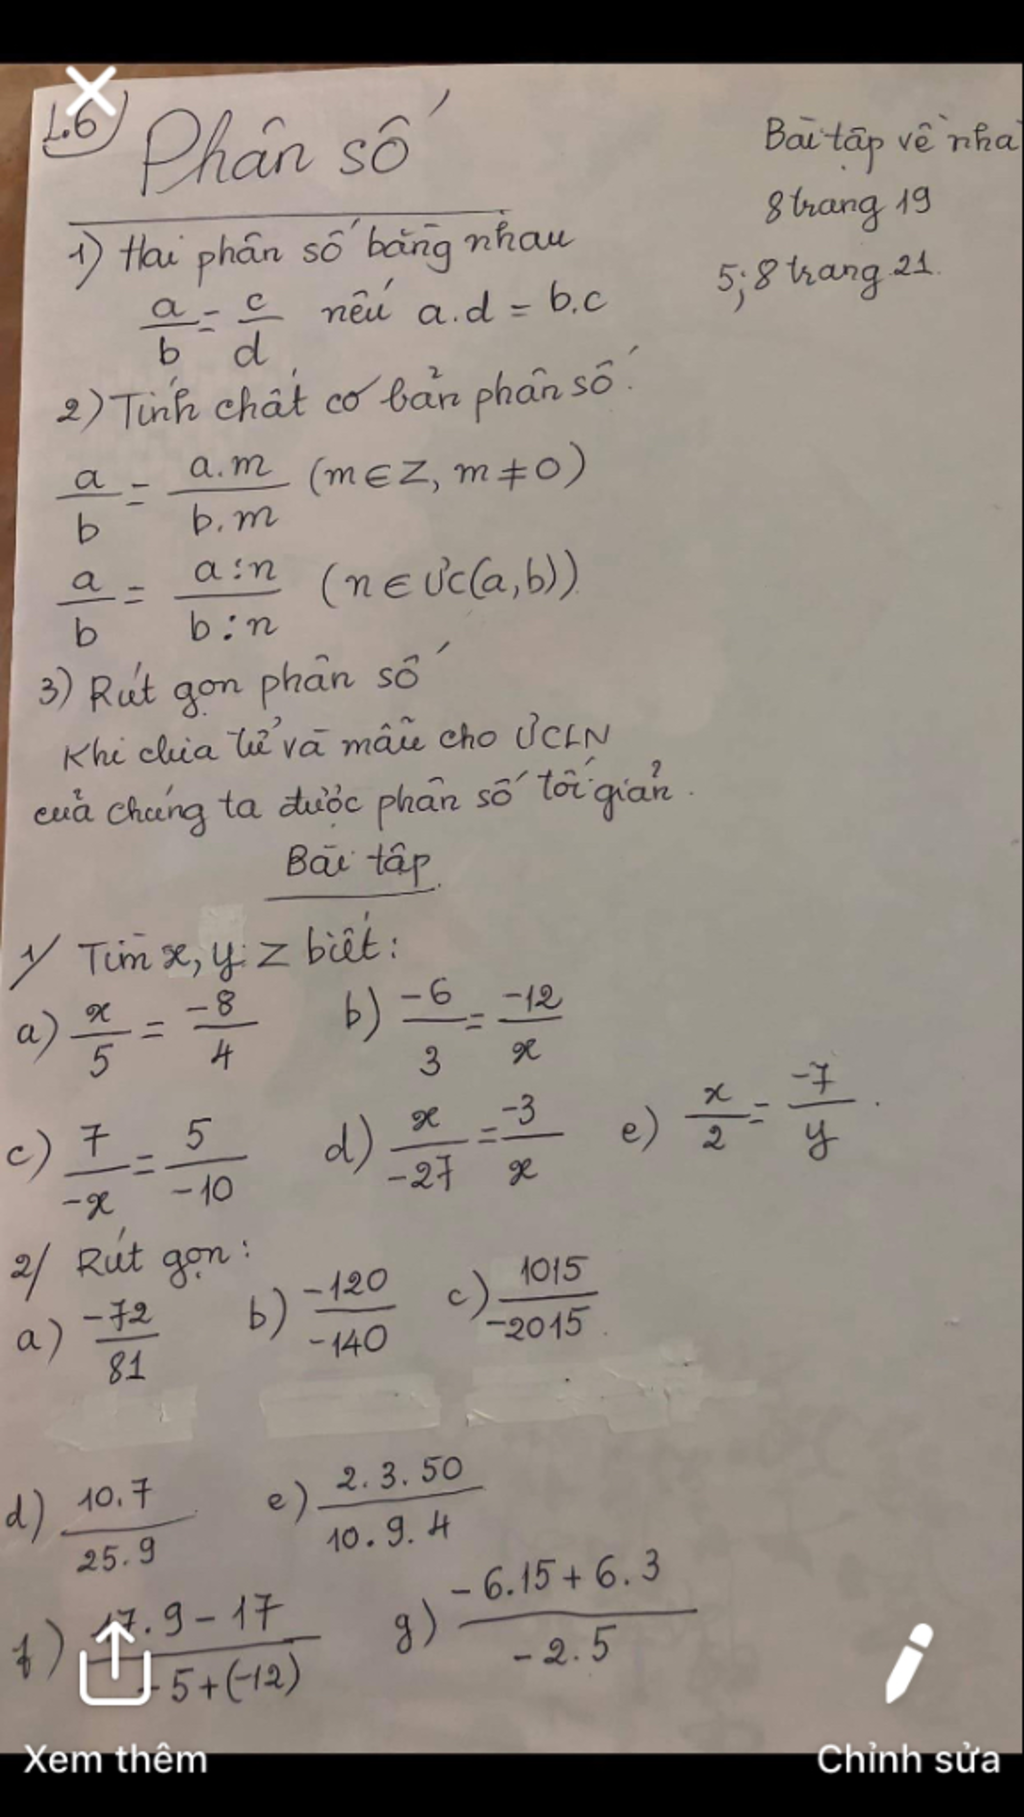 L.6
Phân số
Bài tập về nhà
8 trang 19
5; 8 trang 21.
1) Hai phân số bằng nhau
a/b = c/d nếu a.d = b.c
2) Tính chất cơ bản phân số.
a/b = a.m/b.m (m ∈ Z, m ≠ 0)
a/b = a:n/b:n (n ∈ ƯC(a,b))
3) Rút gọn phân số
Khi chia tử và mẫu cho ƯCLN
của chúng ta được phân số tối giản.
Bài tập
1/ Tìm x, y: Z biết:
a) x/5 = -8/4 b) -6/3 = -12/x
c) 7/-x = 5/-10 d) x/-27 = -3/x e) x/2 = -7/y.
2/ Rút gọn:
a) -72/81 b) -120/-140 c) 1015/-2015.
d) 10.7/25.9 e) 2.3.50/10.9.4
f) 17.9-17/-5+(-12) g) -6.15+6.3/-2.5
Xem thêm
Chỉnh sửa